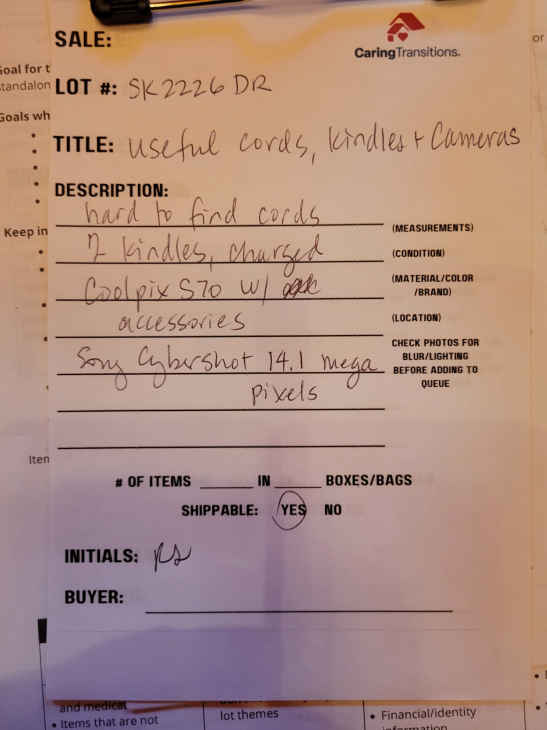 SALE:
CaringTransitions.
LOT #: SK2226 DR
TITLE: useful cords, kindles + Cameras
DESCRIPTION:
hard to find cords
(MEASUREMENTS)
2 kindles, charged
(CONDITION)
Coolpix S70 w/
(MATERIAL/COLOR
/BRAND)
accessories
(LOCATION)
Sony Cybershot 14.1 mega
pixels
CHECK PHOTOS FOR
BLUR/LIGHTING
BEFORE ADDING TO
QUEUE
# OF ITEMS ______ IN ______ BOXES/BAGS
SHIPPABLE: YES NO
INITIALS:
BUYER:
Goals wh
Keep in
Item
and medical
• Items that are not
lot themes
• Financial/identity
information